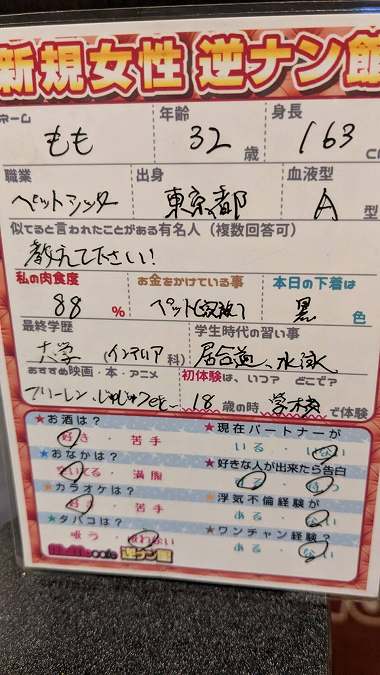 新規女性 逆ナン館
ネーム 年齢 身長
もも 32歳 163
職業 出身 血液型
ペットシッター 東京都 A型
似てると言われたことがある有名人(複数回答可)
教えて下さい!
私の肉食度 お金をかけている事 本日の下着は
88% ペット(家族) 黒色
最終学歴 学生時代の習い事
大学(インテリア科) 居合道、水泳
おすすめ映画・本・アニメ 初体験は、いつ? どこで?
フリーレン、じゅじゅつetc... 18歳の時、学校で体験
★お酒は? ★現在パートナーが
好き・苦手 いる・いない
★おなかは? ★好きな人が出来たら告白
空いてる・満腹 する・待つ
★カラオケは? ★浮気不倫経験が
好き・苦手 ある・ない
★タバコは? ★ワンチャン経験?
吸う・吸わない ある・ない
cafe 逆ナン館